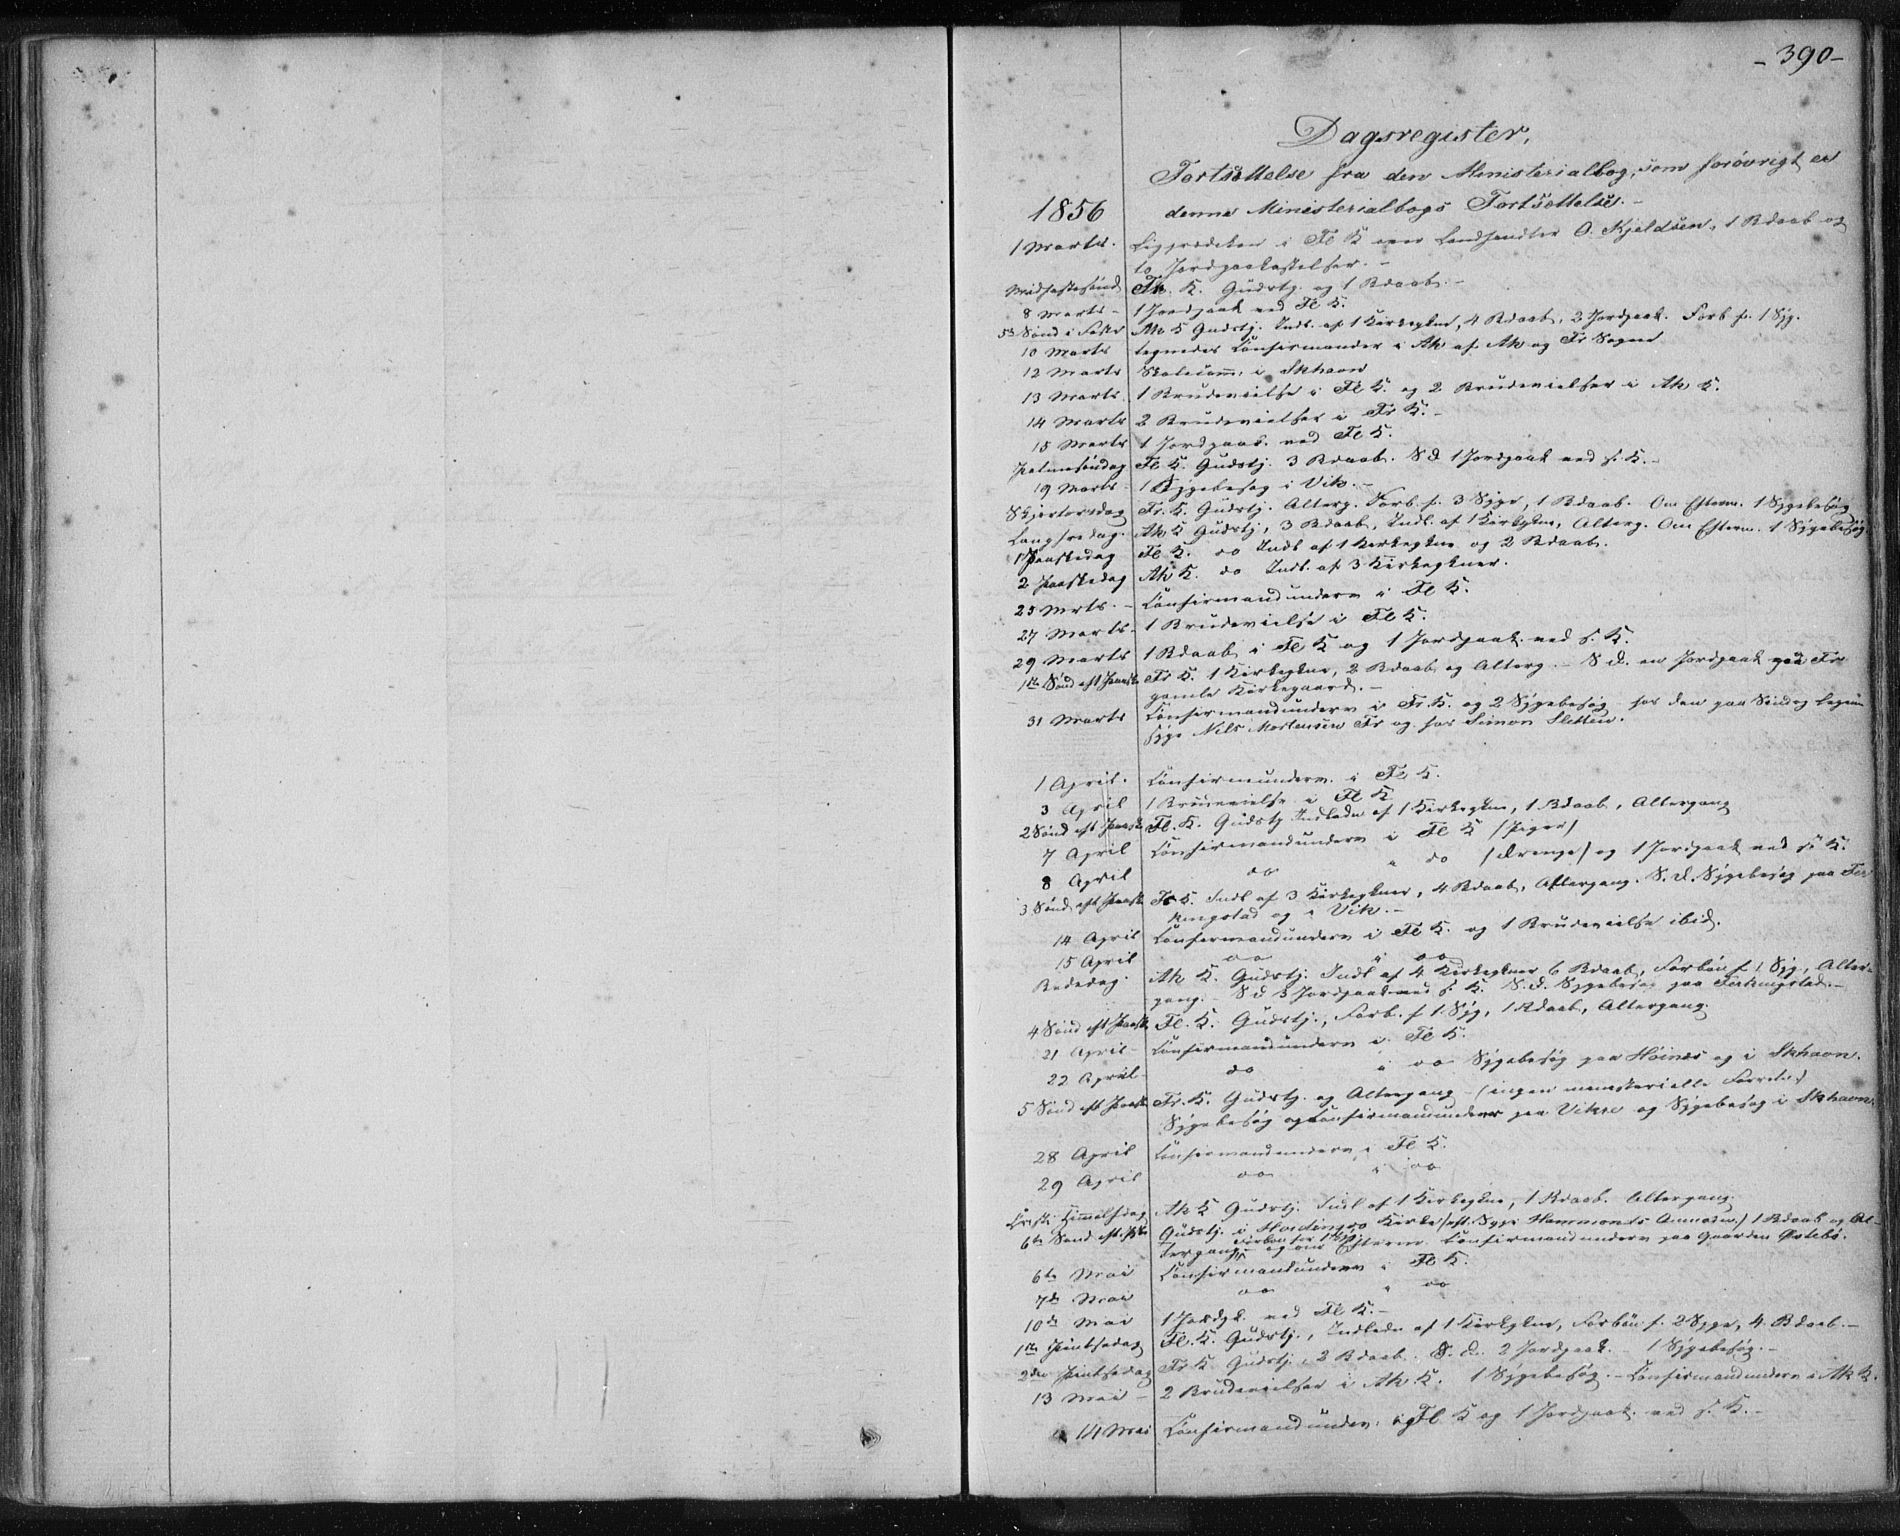 - 390 -
Dagsregister.
Fortsættelse fra den Ministerialbog, som forøvrigt er
1856 denne Ministerialbogs Fortsættelse. -
1 Marts. Ligprædiken i Fl K over Landhandler O. Kjeldsen, 1 Bdaab og
to Jordpaakastelser. -
Midfastesønd K. Gudstj. og 1 Bdaab. -
8 Marts - 1 Jordpaak ved Fl K.
5te Sønd i Faste Ak K Gudstj. Indl. af 1 Kirkegkne, 4 Bdaab, 2 Jordpaak. Forb f. 1 Syg.
10 Marts tegnedes Confirmander i Ak af Ak og Fr Sogne
12 Marts Skolecom. i Skhavn
13 Marts. 1 Brudevielse i Fl K. og 2 Brudevielser i Ak K.
14 Marts 2 Brudevielser i Fr K. -
15 Marts 1 Jordpaak. ved Fl K.
Palmesøndag Fl K. Gudstj. 3 Bdaab. S d 1 Jordpaak ved s. K. -
19 Marts - 1 Sygebesøg i Vik. -
Skjertorsdag Fr. K. Gudstj. Alterg. Forb. f. 3 Syge, 1 Bdaab. Om Efterm. 1 Sygebesøg
Langfredag. Ak K Gudstj, 3 Bdaab, Indl. af 1 Kirkegkne, Alterg. Om Efterm. 1 Sygebesøg
1 Paaskedag Fl K. do Indl af 1 Kirkegkne og 2 Bdaab.
2 Paaskedag Ak K. do Indl. af 3 Kirkegkner.
25 Mrts. - Confirmandunderv i Fl K.
27 Marts - 1 Brudevielse i Fl K.
29 Marts 1 Bdaab i Fl K og 1 Jordpaak. ved s. K.
1ste Sønd eft Paaske Fr K. 1 Kirkegkne, 2 Bdaab og Alterg. - S d. en Jordpaak paa Fr
gamle Kirkegaard. -
31 Marts Confirmandunderv i Fr. K. og 2 Sygebesøg hos den paa
syge Nils Mortensen Fr og hos Simon Sletten.
1 April. Confirmunderv. i Fl K.
3 April 1 Brudevielse i Fl K
2 Sønd eft Paaske Fl. K. Gudstj Indlede af 1 Kirkegkne, 1 Bdaab, Altergang
7 April Confirmandunderv i Fl K (Piger)
8 April do i do (Drenge) og 1 Jordpaak ved s K.
3 Sønd eft Paask Fr K. Indl af 3 Kirkegkner, 4 Bdaab, Altergang. S. d. Sygebesøg paa Fer
kingstad og i Vik. -
14 April Confirmandunderv i Fl K. og 1 Brudevielse ibid.
15 April do i do
Bededag. Ak K. Gudstj. Indl af 4 Kirkegkner 6 Bdaab, Forbøn f. 1 Syg, Alter-
gang. - S d 3 Jordpaak ved s. K. S. d. Sygebesøg paa Ferkingstad. -
4 Sønd eft Paask Fl. K. Gudstj., Forb. f 1 Syg, 1 Bdaab, Altergang
21 April - Confirmandunderv i Fl K.
22 April - do i do Sygebesøg paa Høinæs og i Skhavn.
5 Sønd eft Paask Fr. K. Gudstj. og Altergang - (ingen ministerielle Forretn.)
Sygebesøg og Confirmandunderv paa Vikre og Sygebesøg i Skhavn.
28 April Confirmandunderv i Fl K.
29 April do i do
Christi Himmelfdag Ak K Gudstj. Indl af 1 Kirkegkne, 1 Bdaab. Altergang.
6te Sønd eft. Gudstj. i Kirke (eft. Sgpr Hammonts Anmodn.) 1 Bdaab og Al-
tergang Forbøn for 1 Syg og om Efterm Confirmandunderv paa Gaarden Østebø.
6te Mai Confirmandunderv i Fl K.
7de Mai do " do
10de Mai 1 Jordpk. ved Fl K. -
1ste Pintsedag Fl. K. Gudstj., Indlede af 1 Kirkegkne, Forbøn f. 2 Syge, 4 Bdaab. -
2den Pintsedag Fr K Gudstj., 2 Bdaab. S. d. 2 Jordpaak. - 1 Sygebesøg. -
13 Mai - 2 Brudevielser i Ak K. 1 Sygebesøg. - Confirmandunderv i Ak K.
14 Mai Confirmandunderv. i Fl K og 1 Jordpaak. ved s. K. -